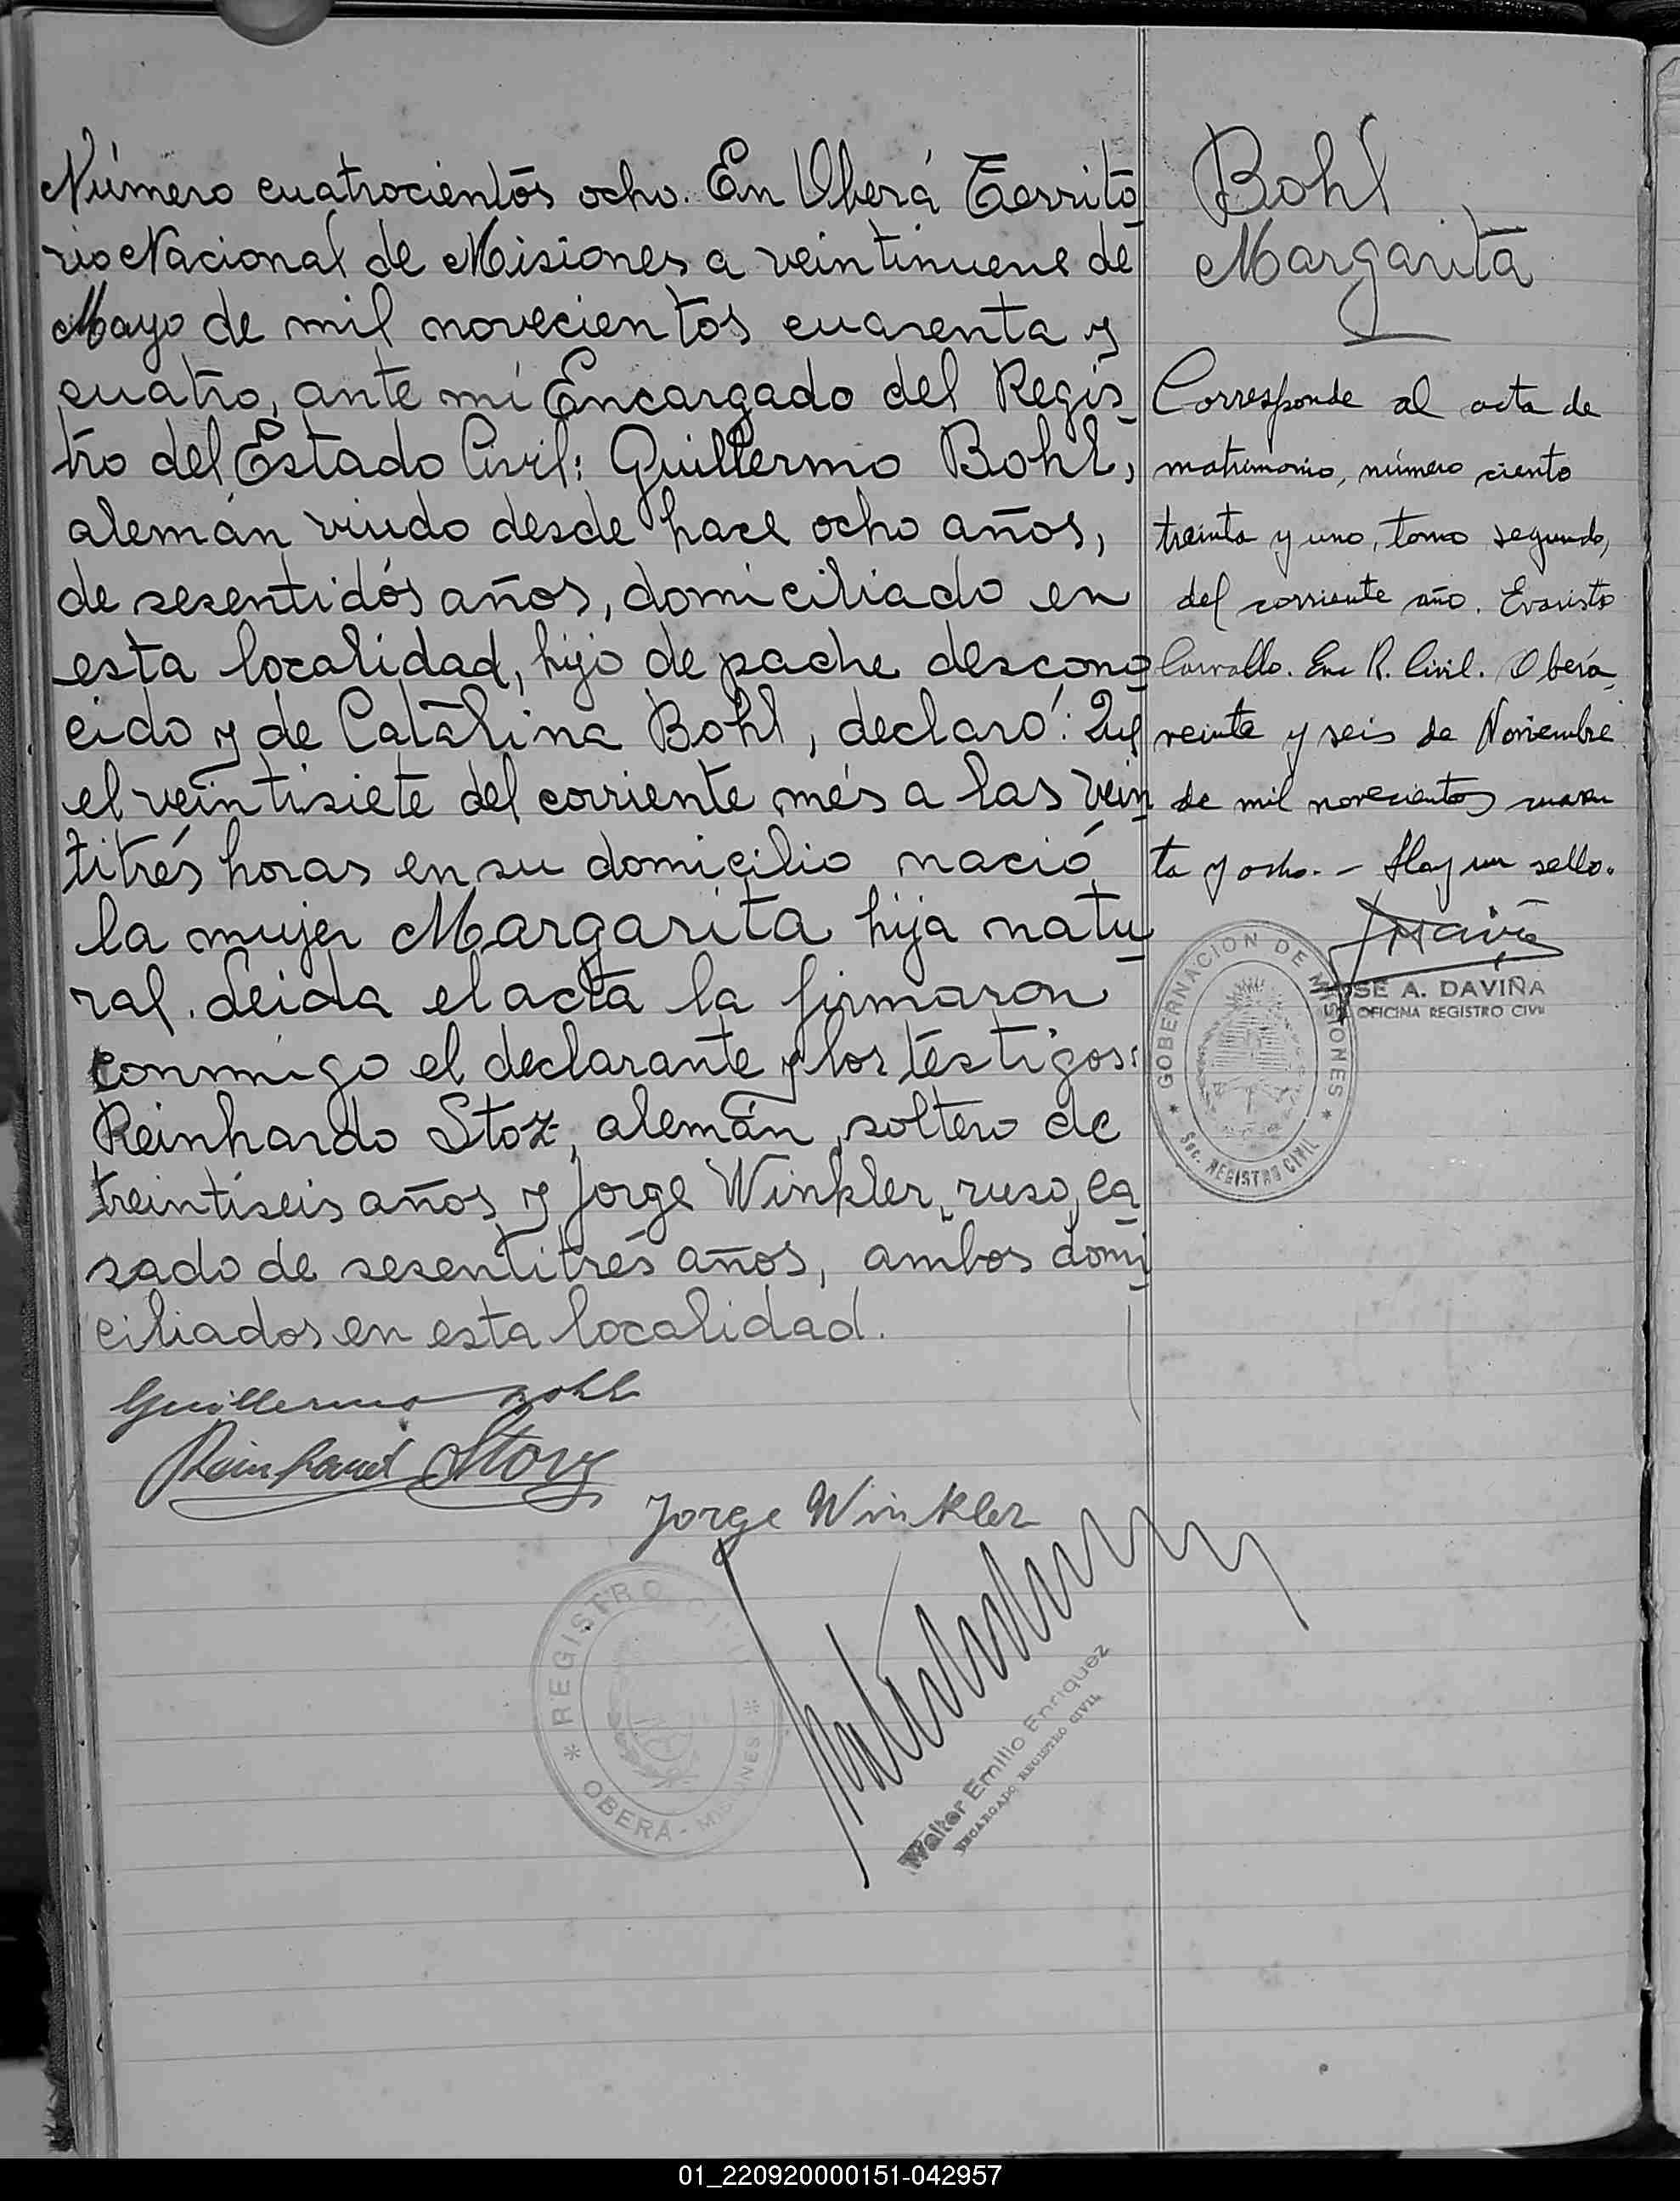 Número cuatrocientos ocho. En Oberá Territo
rio Nacional de Misiones a veintinueve de
Mayo de mil novecientos cuarenta y
cuatro, ante mí Encargado del Regis
tro del Estado Civil: Guillermo Bohl,
alemán viudo desde hace ocho años,
de sesentidós años, domiciliado en
esta localidad, hijo de padre descono
cido y de Catalina Bohl, declaró: Que
el veintisiete del corriente més a las vein
titrés horas en su domicilio nació
la mujer Margarita hija natu
ral. Leida el acta la firmaron
conmigo el declarante y los testigos:
Reinhardo Stoz, alemán, soltero de
treintiseis años y Jorge Winkler, ruso, ca
sado de sesentitrés años, ambos domi
ciliados en esta localidad.
Guillermo Bohl
Reinhard Storz
Jorge Winkler
REGISTRO CIVIL
* OBERÁ - MISIONES *
Walter Emilio Enriquez
ENCARGADO REGISTRO CIVIL
Bohl
Margarita
Corresponde al acta de
matrimonio, número ciento
treinta y uno, tomo segundo,
del corriente año. Evaristo
Carvallo. Enc R. Civil. Oberá,
veinte y seis de Noviembre
de mil novecientos cuaren
ta y ocho. - Hay un sello.
SE A. DAVIÑA
OFICINA REGISTRO CIVIL
* GOBERNACION DE MISIONES *
Sec. REGISTRO CIVIL
01_220920000151-042957